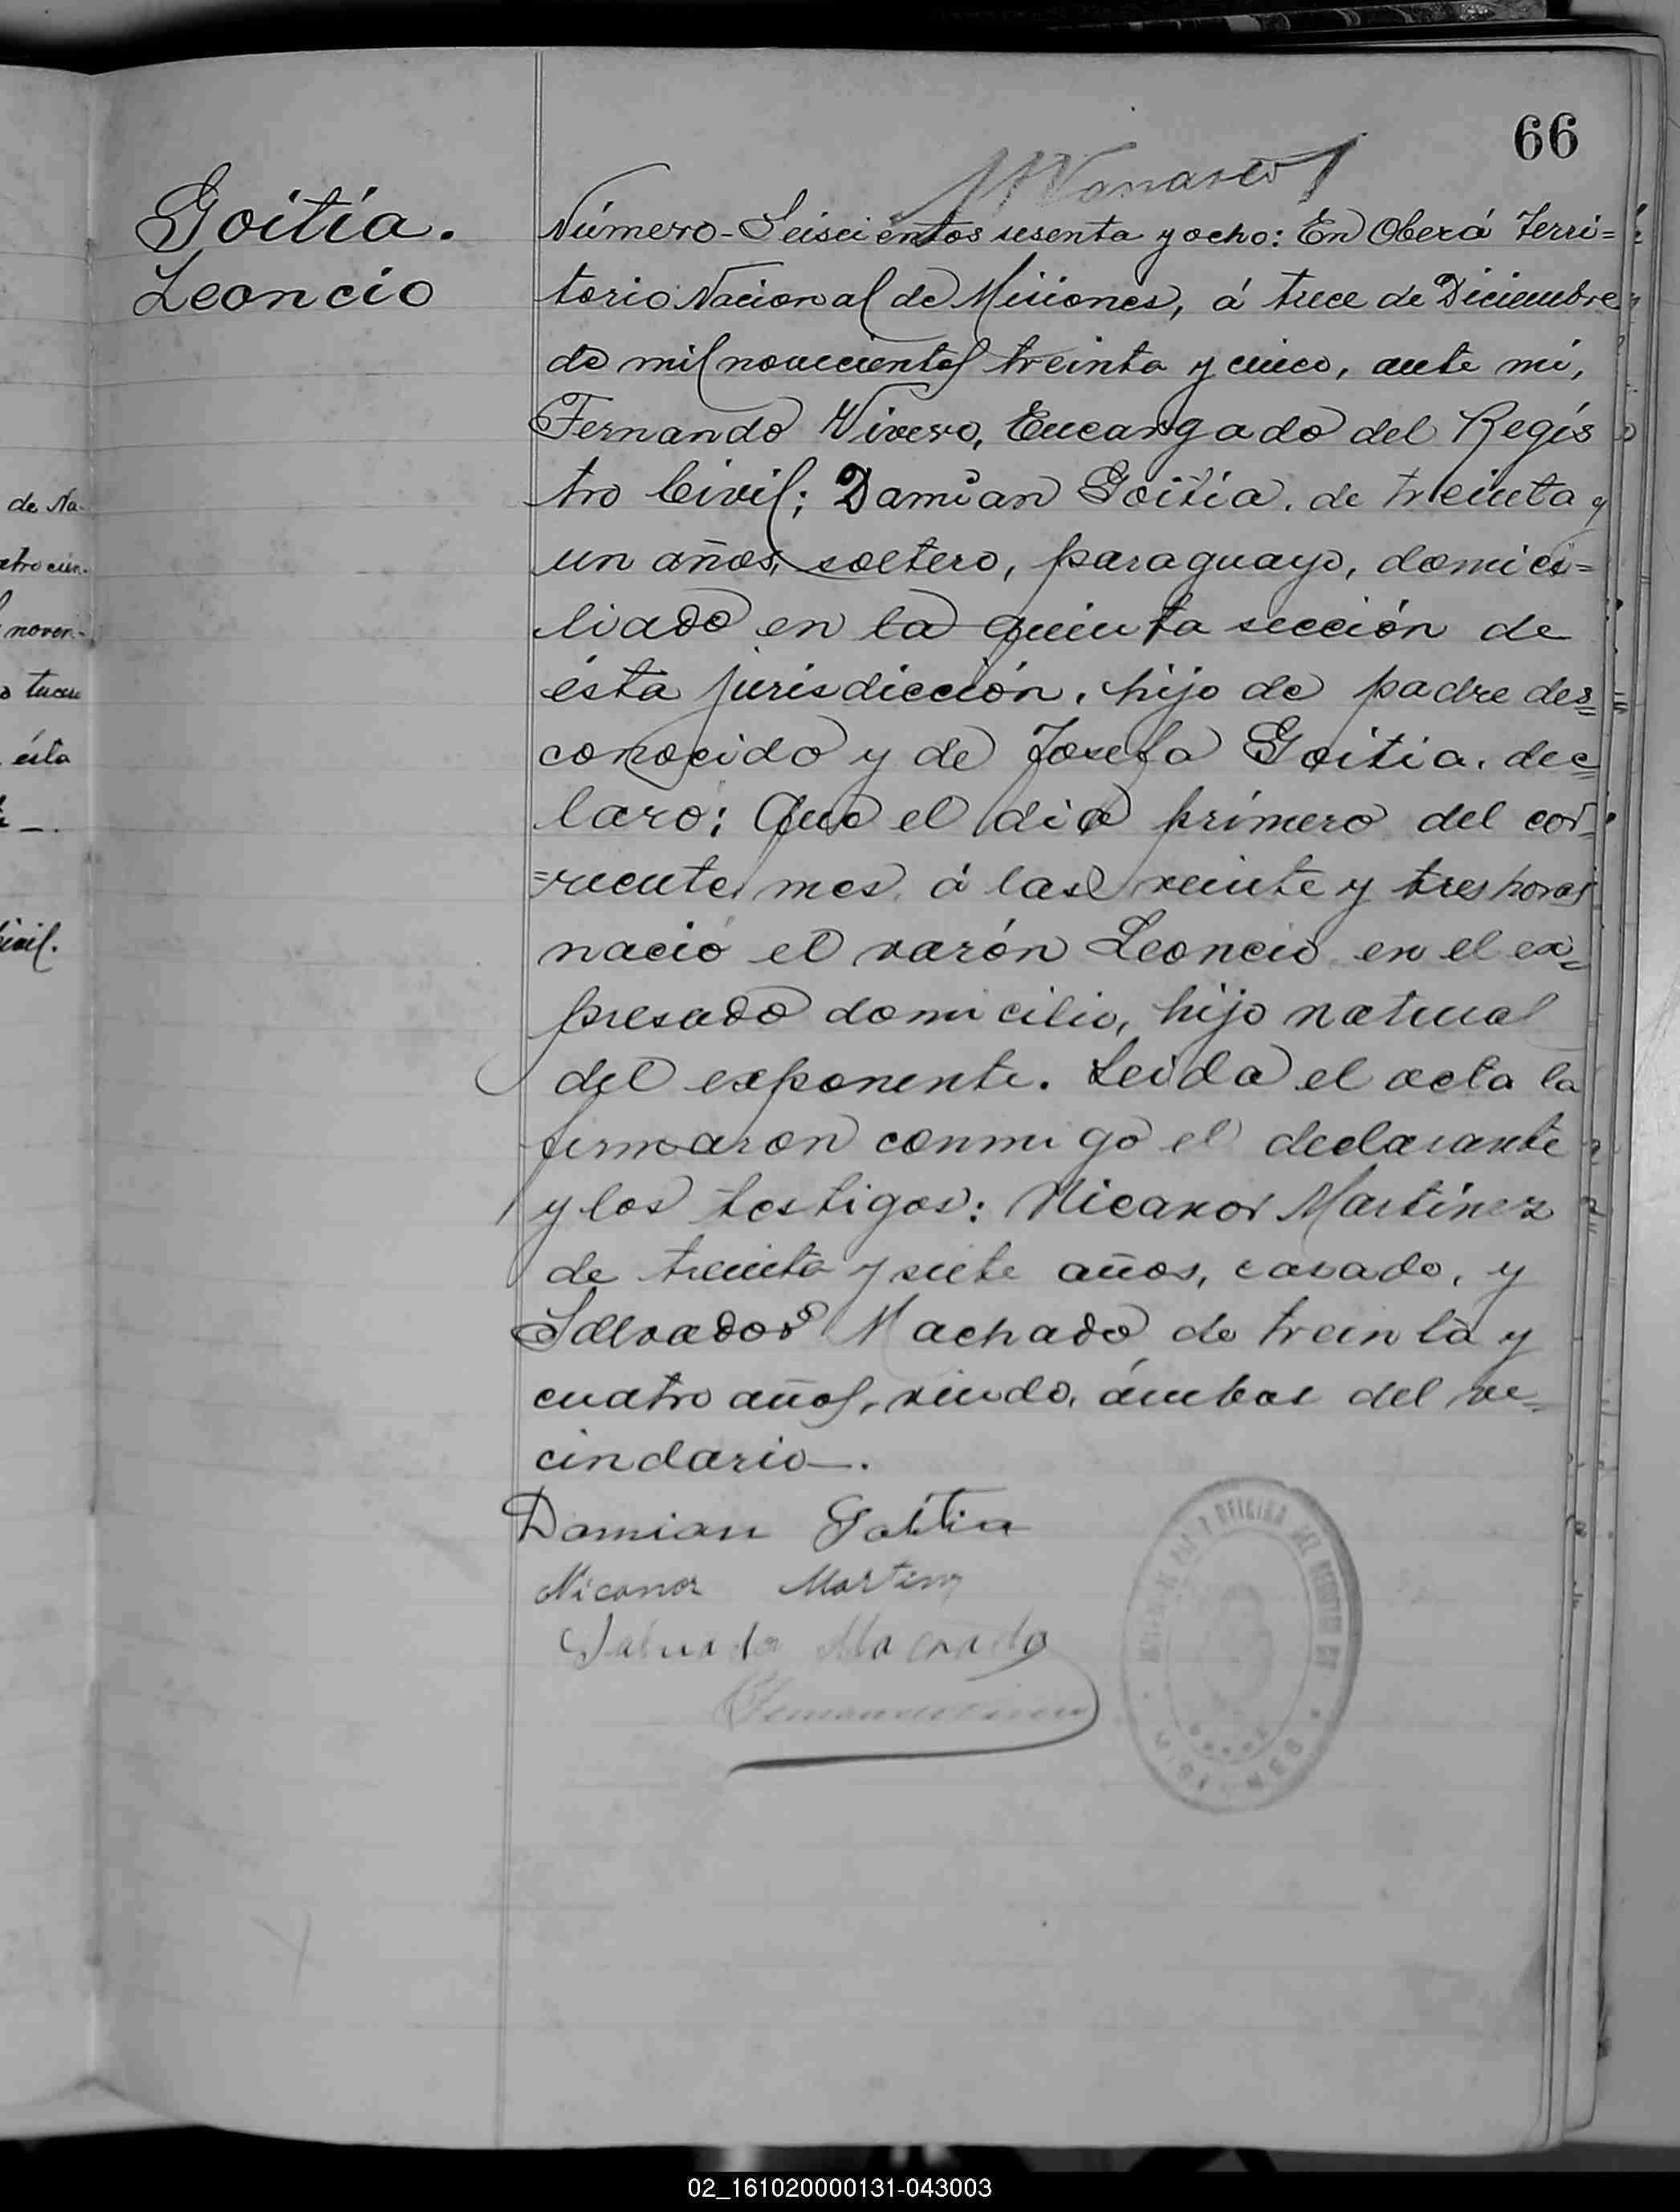 66
Goitía.
Leoncio
Número-Seiscientos sesenta y ocho: En Oberá Terri=
torio Nacional de Misiones, á trece de Diciembre
de mil novecientos treinta y cinco, ante mí,
Fernando Vivero, Encargado del Regís
tro Civil; Damian Goitía, de treinta y
un años, soltero, paraguayo, domici=
liado en la quinta sección de
ésta jurisdicción, hijo de padre des=
conocido y de Josefa Goitia, dec=
laro: Que el dia primero del cor=
=riente mes, á las veinte y tres horas
nació el varón Leoncio en el ex=
presado domicilio, hijo natural
del exponente. Leida el acta la
firmaron conmigo el declarante
y los testigos: Nicanor Martínez
de treinta y siete años, casado, y
Salvador Machado de treinta y
cuatro años, viudo, ámbos del ve=
cindario—.
Damian Goitia
Nicanor
Machado
OFICINA DEL
MISIONES
de Na-
noven-
ésta
02_161020000131-043003